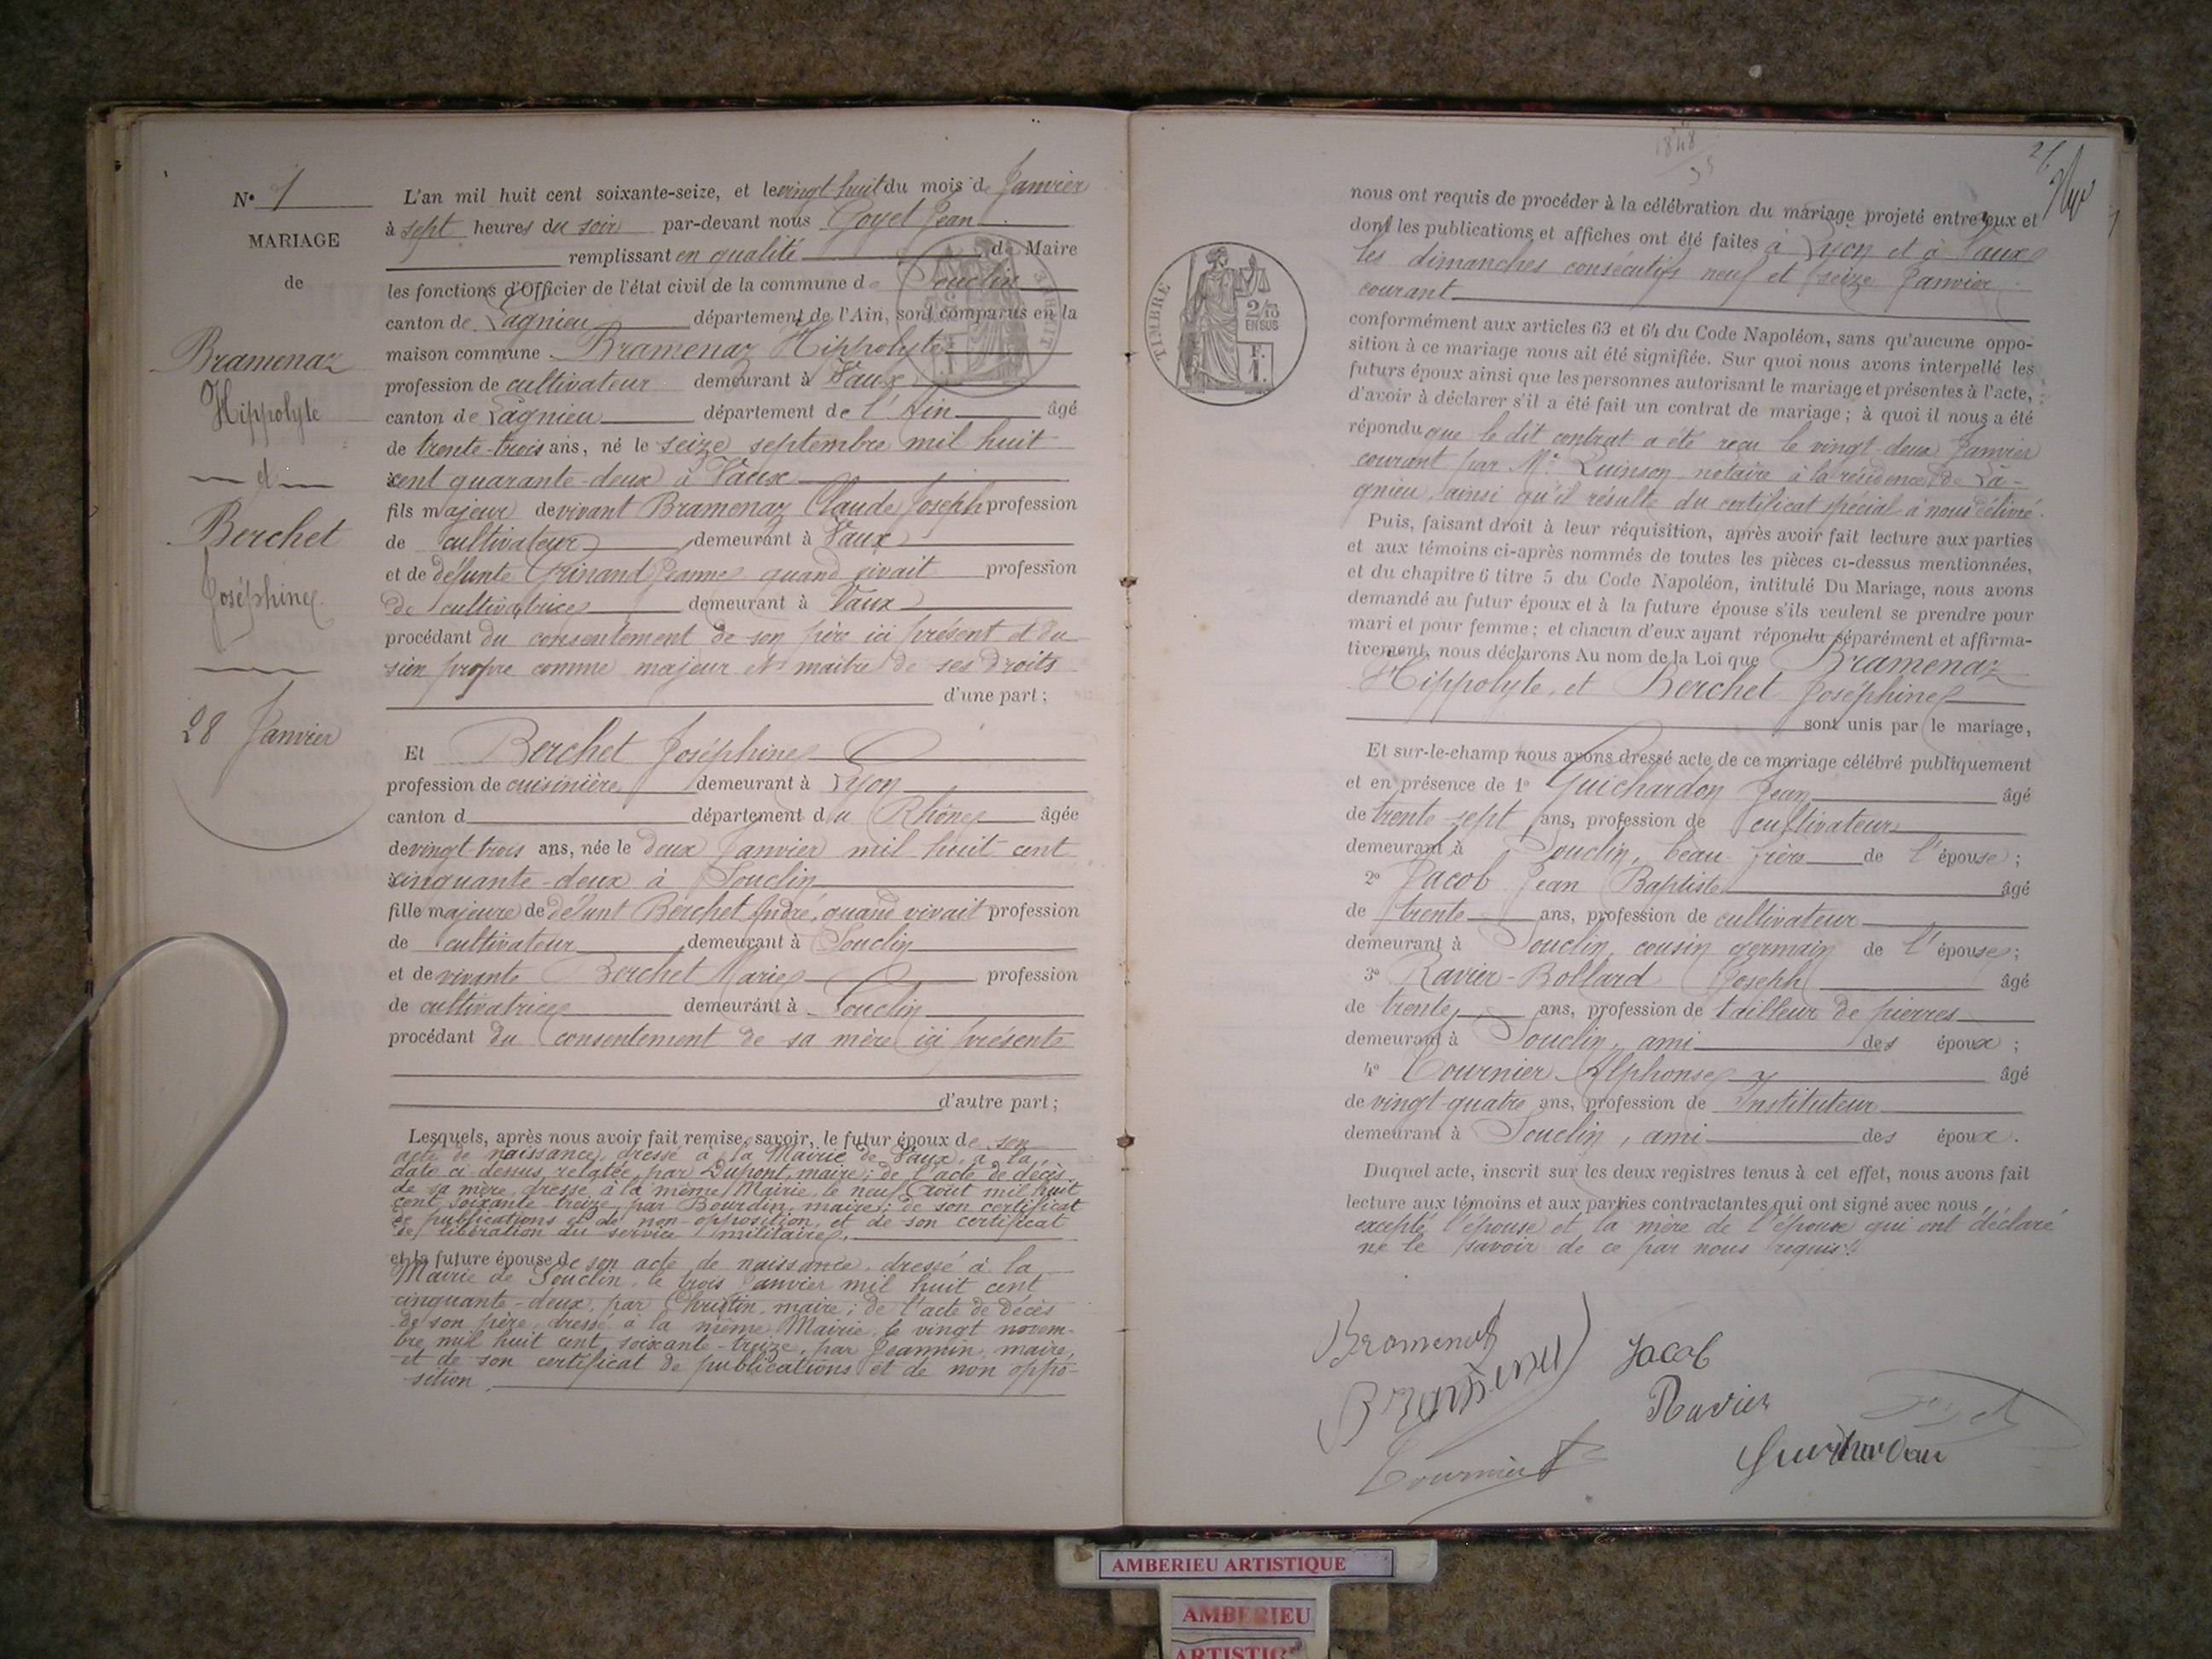 N° 1
MARIAGE
de
Bramenaz
Hippolyte
et
Berchet
Joséphine
28 Janvier
L'an mil huit cent soixante-seize, et le vingt-huit du mois de Janvier
à sept heures du soir par-devant nous Goyet Jean
remplissant en qualité de Maire
les fonctions d'Officier de l'état civil de la commune de Souclin
canton de Lagnieu département de l'Ain, sont comparus en la
maison commune Bramenaz Hippolyte
profession de cultivateur demeurant à Vaux
canton de Lagnieu département de l'Ain âgé
de trente-trois ans, né le seize septembre mil huit
cent quarante-deux à Vaux
fils majeur de vivant Bramenaz Claude Joseph profession
de cultivateur demeurant à Vaux
et de défunte Grinand Jeanne quand vivait profession
de cultivatrice demeurant à Vaux
procédant du consentement de son père ici présent et du
sien propre comme majeur et maître de ses droits
d'une part ;
Et Berchet Joséphine
profession de cuisinière demeurant à Lyon
canton d département du Rhône âgée
de vingt-trois ans, née le deux Janvier mil huit cent
cinquante-deux à Souclin
fille majeure de défunt Berchet André, quand vivait profession
de cultivateur demeurant à Souclin
et de vivante Berchet Marie profession
de cultivatrice demeurant à Souclin
procédant du consentement de sa mère ici présente
d'autre part ;
Lesquels, après nous avoir fait remise, savoir, le futur époux de son
acte de naissance, dressé à la Mairie de Vaux, à la
date ci-dessus relatée, par Dupont, maire ; de l'acte de décès
de sa mère, dressé à la même Mairie, le neuf Août mil huit
cent soixante-treize, par Bourdin, maire ; de son certificat
de publications et de non-opposition, et de son certificat
de libération du service militaire,
et la future épouse de son acte de naissance, dressé à la
Mairie de Souclin, le trois Janvier mil huit cent
cinquante-deux, par Christin, maire ; de l'acte de décès
de son père, dressé à la même Mairie, le vingt novem-
bre mil huit cent soixante-treize, par Jeannin, maire,
et de son certificat de publications et de non oppo-
sition
1848
TIMBRE
2/10
EN SUS
nous ont requis de procéder à la célébration du mariage projeté entre eux et
dont les publications et affiches ont été faites à Lyon et à Vaux
les dimanches consécutifs neuf et seize Janvier
courant
conformément aux articles 63 et 64 du Code Napoléon, sans qu'aucune oppo-
sition à ce mariage nous ait été signifiée. Sur quoi nous avons interpellé les
futurs époux ainsi que les personnes autorisant le mariage et présentes à l'acte,
d'avoir à déclarer s'il a été fait un contrat de mariage ; à quoi il nous a été
répondu que le dit contrat a été reçu le vingt-deux Janvier
courant par Me Quinson notaire à la résidence de La-
gnieu, ainsi qu'il résulte du certificat spécial à nous délivré.
Puis, faisant droit à leur réquisition, après avoir fait lecture aux parties
et aux témoins ci-après nommés de toutes les pièces ci-dessus mentionnées,
et du chapitre 6 titre 5 du Code Napoléon, intitulé Du Mariage, nous avons
demandé au futur époux et à la future épouse s'ils veulent se prendre pour
mari et pour femme ; et chacun d'eux ayant répondu séparément et affirma-
tivement, nous déclarons Au nom de la Loi que Bramenaz
Hippolyte, et Berchet Joséphine
sont unis par le mariage,
Et sur-le-champ nous avons dressé acte de ce mariage célébré publiquement
et en présence de 1° Guichardon Jean âgé
de trente-sept ans, profession de cultivateur
demeurant à Souclin, beau-frère de l'épouse ;
2° Jacob Jean Baptiste âgé
de trente ans, profession de cultivateur
demeurant à Souclin, cousin germain de l'épouse ;
3° Ravier-Bollard Joseph âgé
de trente ans, profession de tailleur de pierres
demeurant à Souclin, ami des époux ;
4° Tournier Alphonse âgé
de vingt-quatre ans, profession de Instituteur
demeurant à Souclin, ami des époux.
Duquel acte, inscrit sur les deux registres tenus à cet effet, nous avons fait
lecture aux témoins et aux parties contractantes qui ont signé avec nous,
excepté l'épouse et la mère de l'épouse qui ont déclaré
ne le savoir de ce par nous requis.
Bramenaz
Jacob
Ravier
Goyet
Tournier
Guichardon
AMBERIEU ARTISTIQUE
AMBERIEU
ARTISTIQUE